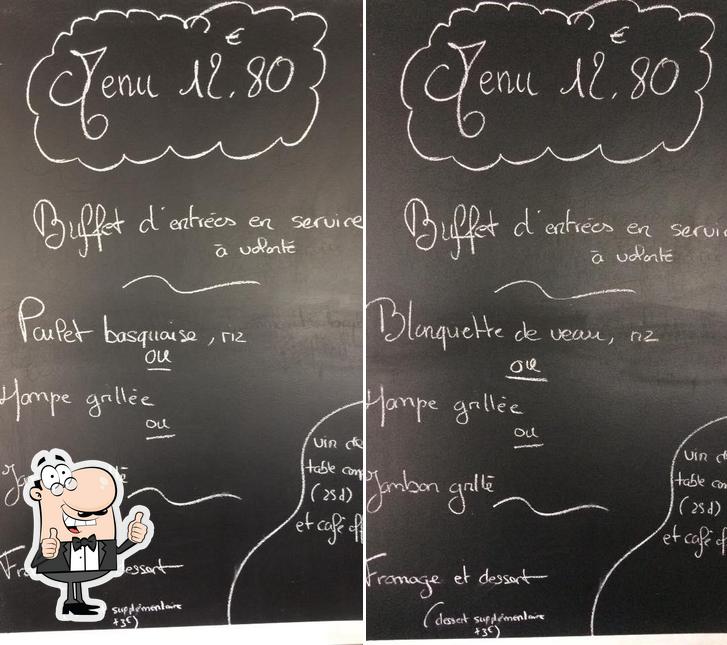 Menu 12,80 €
Buffet d'entrées en service
à volonté
Poulet basquaise, riz
ou
Hampe grillée
ou
vin de
table com
(25cl)
et café of
dessert
supplémentaire
+3€)
Menu 12,80 €
Buffet d'entrées en servi
à volonté
Blanquette de veau, riz
ou
Hampe grillée
ou
Jambon grillé
vin d
table com
(25cl)
et café of
Fromage et dessert
(dessert supplémentaire
+3€)